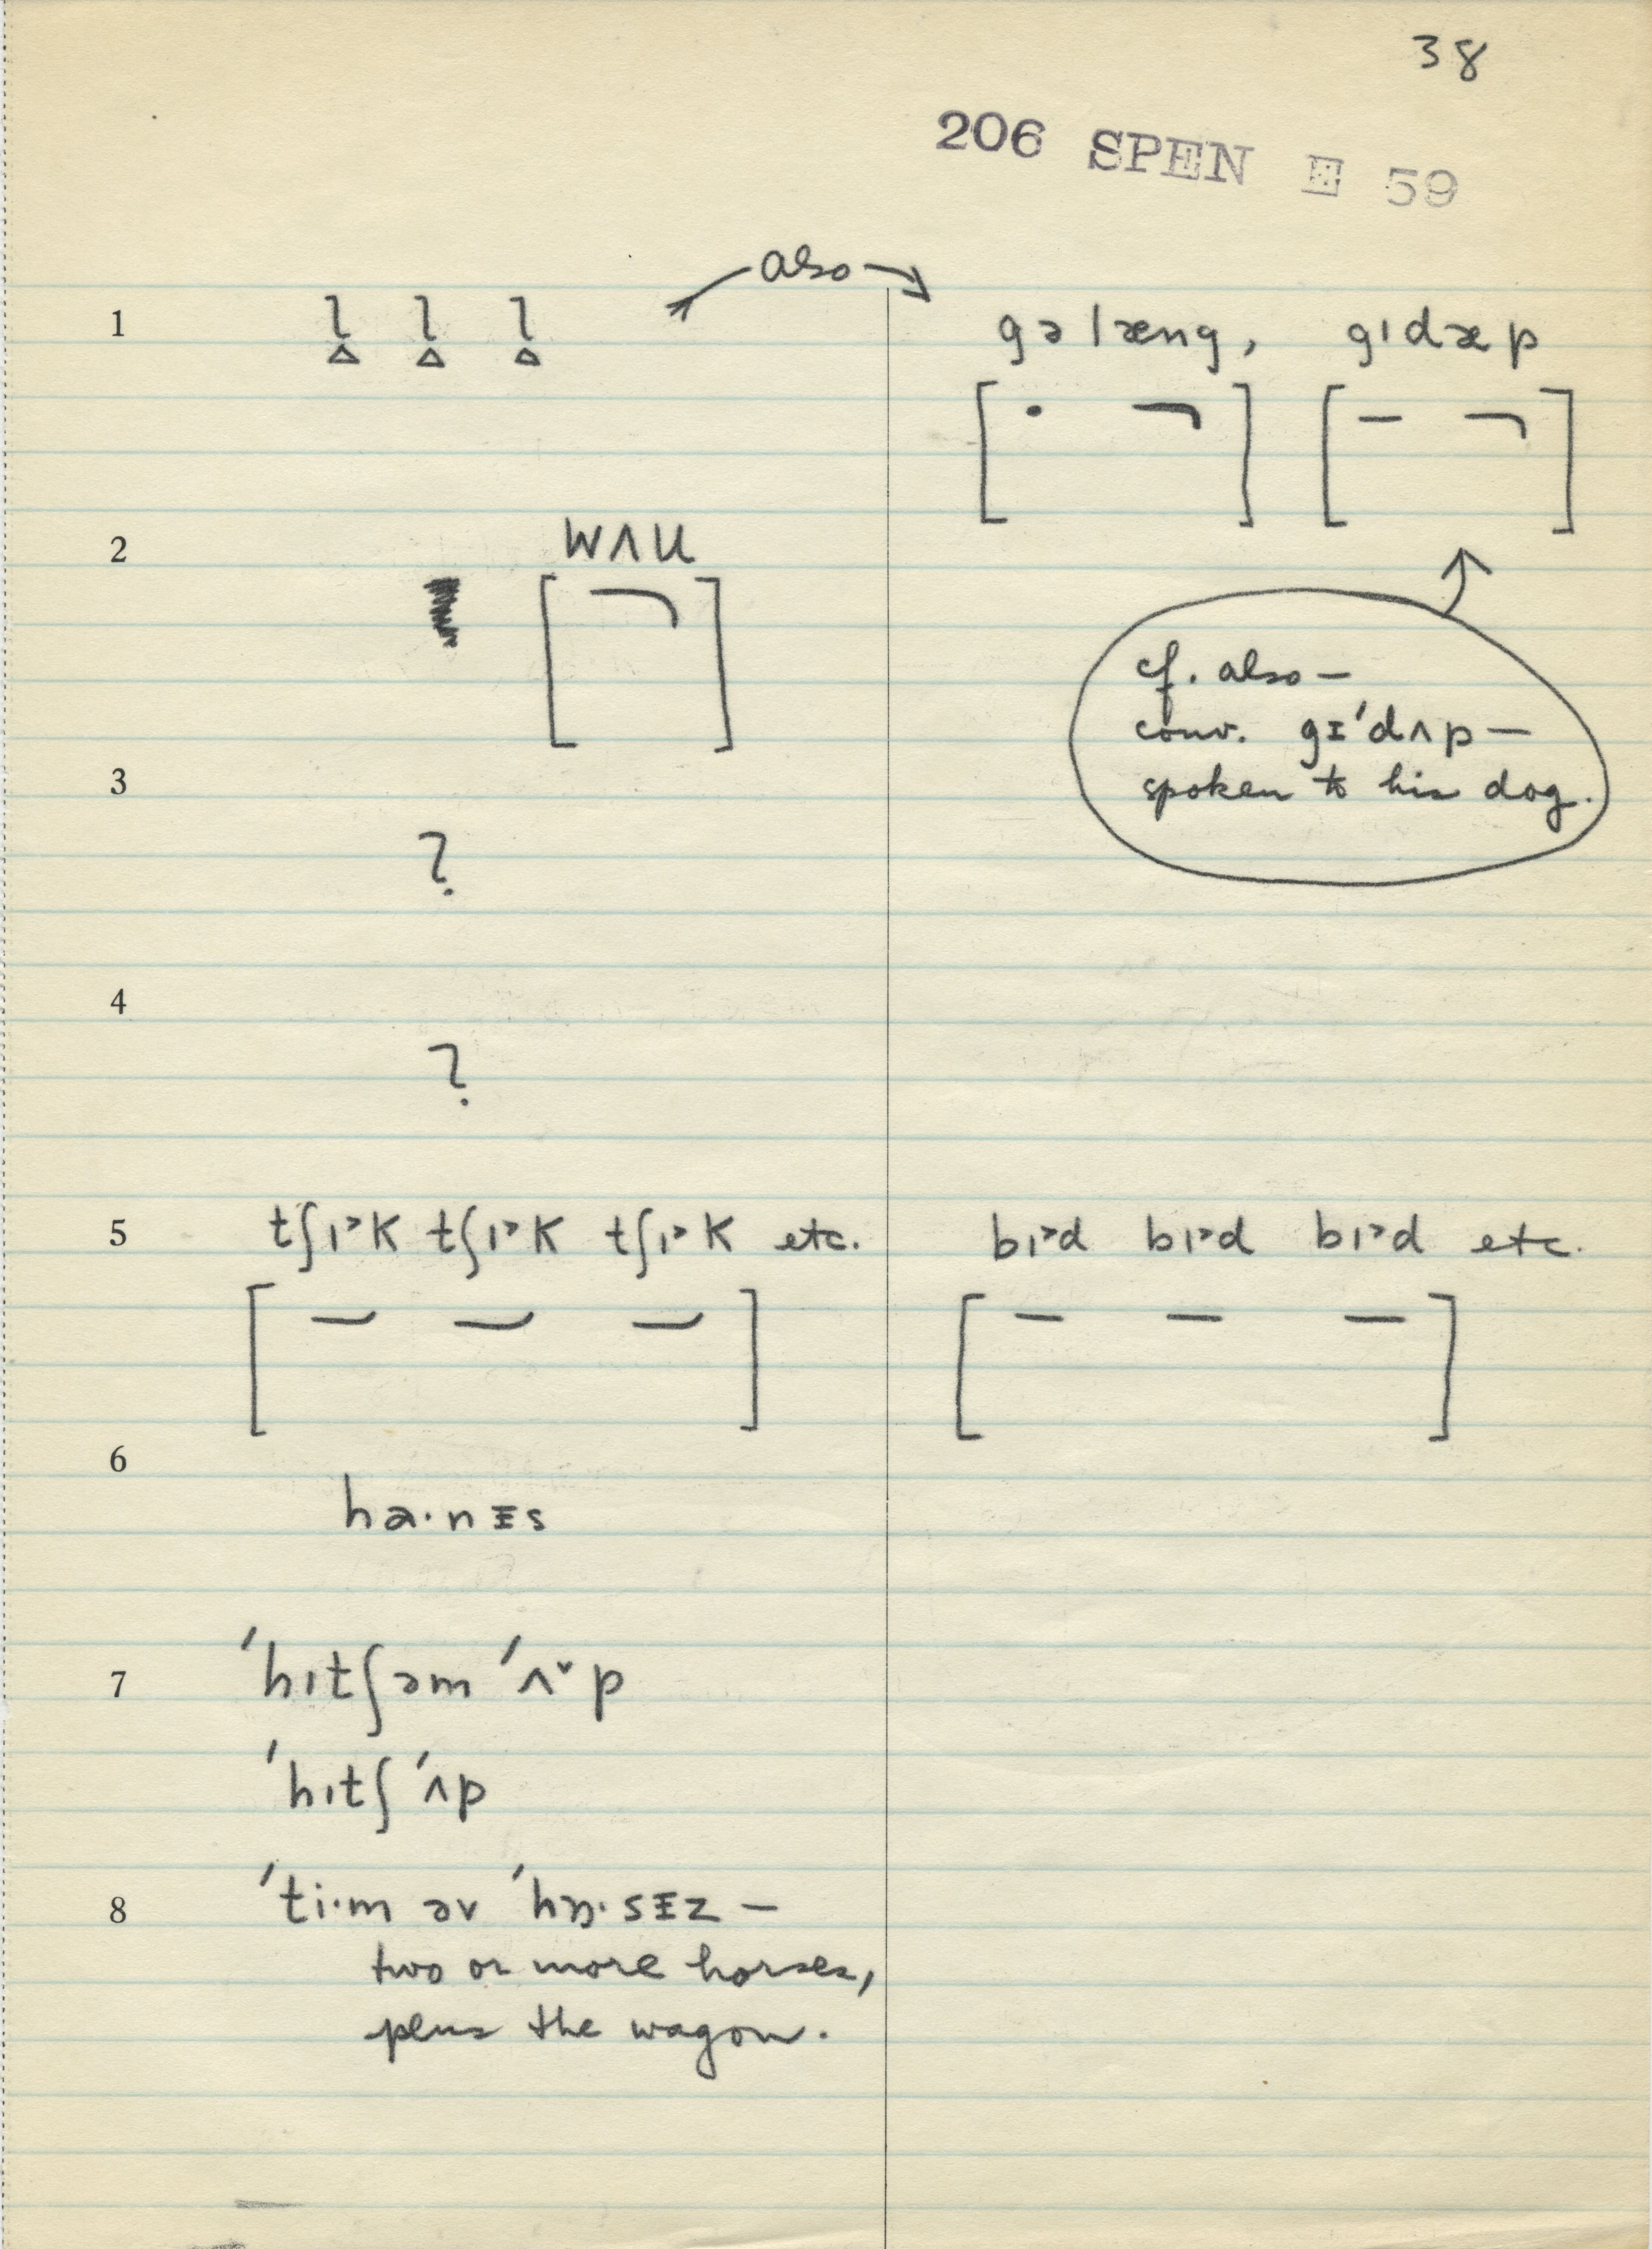 38
206 SPEN E 59
also
1 ʅ ʅ ʅ gəlæng, gɪdæp
2 wʌu
cf. also —
conv. gᵻˈdʌp —
spoken to his dog.
3 ?
4 ?
5 tʃɪ˃k tʃɪ˃k tʃɪ˃k etc. bɪ˃d bɪ˃d bɪ˃d etc.
6 ha·nᵻs
7 ˈhɪtʃəm ˈʌ˅p
ˈhɪtʃ ˈʌp
8 ˈti·m əv ˈhɒ·sᵻz —
two or more horses,
plus the wagon.